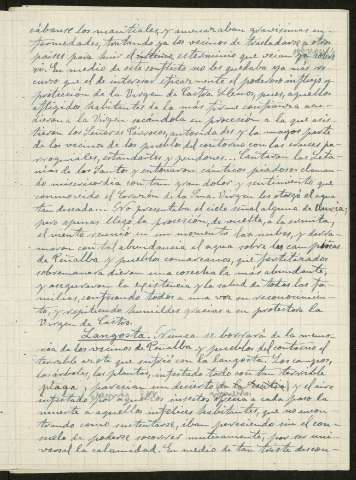 cábanse los manantiales, y amenazaban gravísimas en-
fermedades, tratando ya los vecinos de trasladarse a otros
países para huir el exterminio que veían
En medio de este conflicto no les quedaba ya más re-
curso que el de interesar eficazmente el poderoso influjo y
protección de la Virgen de Castro. Llenos, pues, aquellos
afligidos habitantes de la más firme confianza acu-
dieron a la Virgen sacándola en procesión a la que asis-
tieron los Señores Párrocos, autoridades y la mayor parte
de los vecinos de los pueblos del contorno con las cruces pa-
rroquiales, estandartes y pendones. Cantaron las Leta-
nías de los Santos y entonaron cánticos piadosos claman-
do misericordia con tan gran dolor y sentimiento que
conmovido el Corazón de la Sma. Virgen les otorgó el agua
tan deseada. No presentaba el cielo señal alguna de lluvia;
pero apenas llegó la procesión, de vuelta, a la ermita,
el viento reunió en un momento las nubes, y derra-
maron con tal abundancia el agua sobre las campiñas
de Peñalba y pueblos comarcanos, que fertilizados
sobremanera dieron una cosecha la más abundante,
y aseguraron la existencia y la salud de todas las fa-
milias, confesando todos a una voz su reconocimien-
to, y repitiendo humildes gracias a su protectora la
Virgen de Castro.
Langosta. Nunca se borrará de la memo-
ria de los vecinos de Peñalba y pueblos del contorno el
terrible azote que sufrió con la langosta. Los campos,
los árboles, las plantas, infestado todo con tan terrible
plaga, parecían un desierto de la y el aire
infestado por aquellos insectos ofrecía a cada paso la
muerte a aquellos infelices habitantes, que no encon-
trando como sustentarse, iban pereciendo sin el con-
suelo de poderse socorrer mutuamente, por ser uni-
versal la calamidad. En medio de tan triste descon-